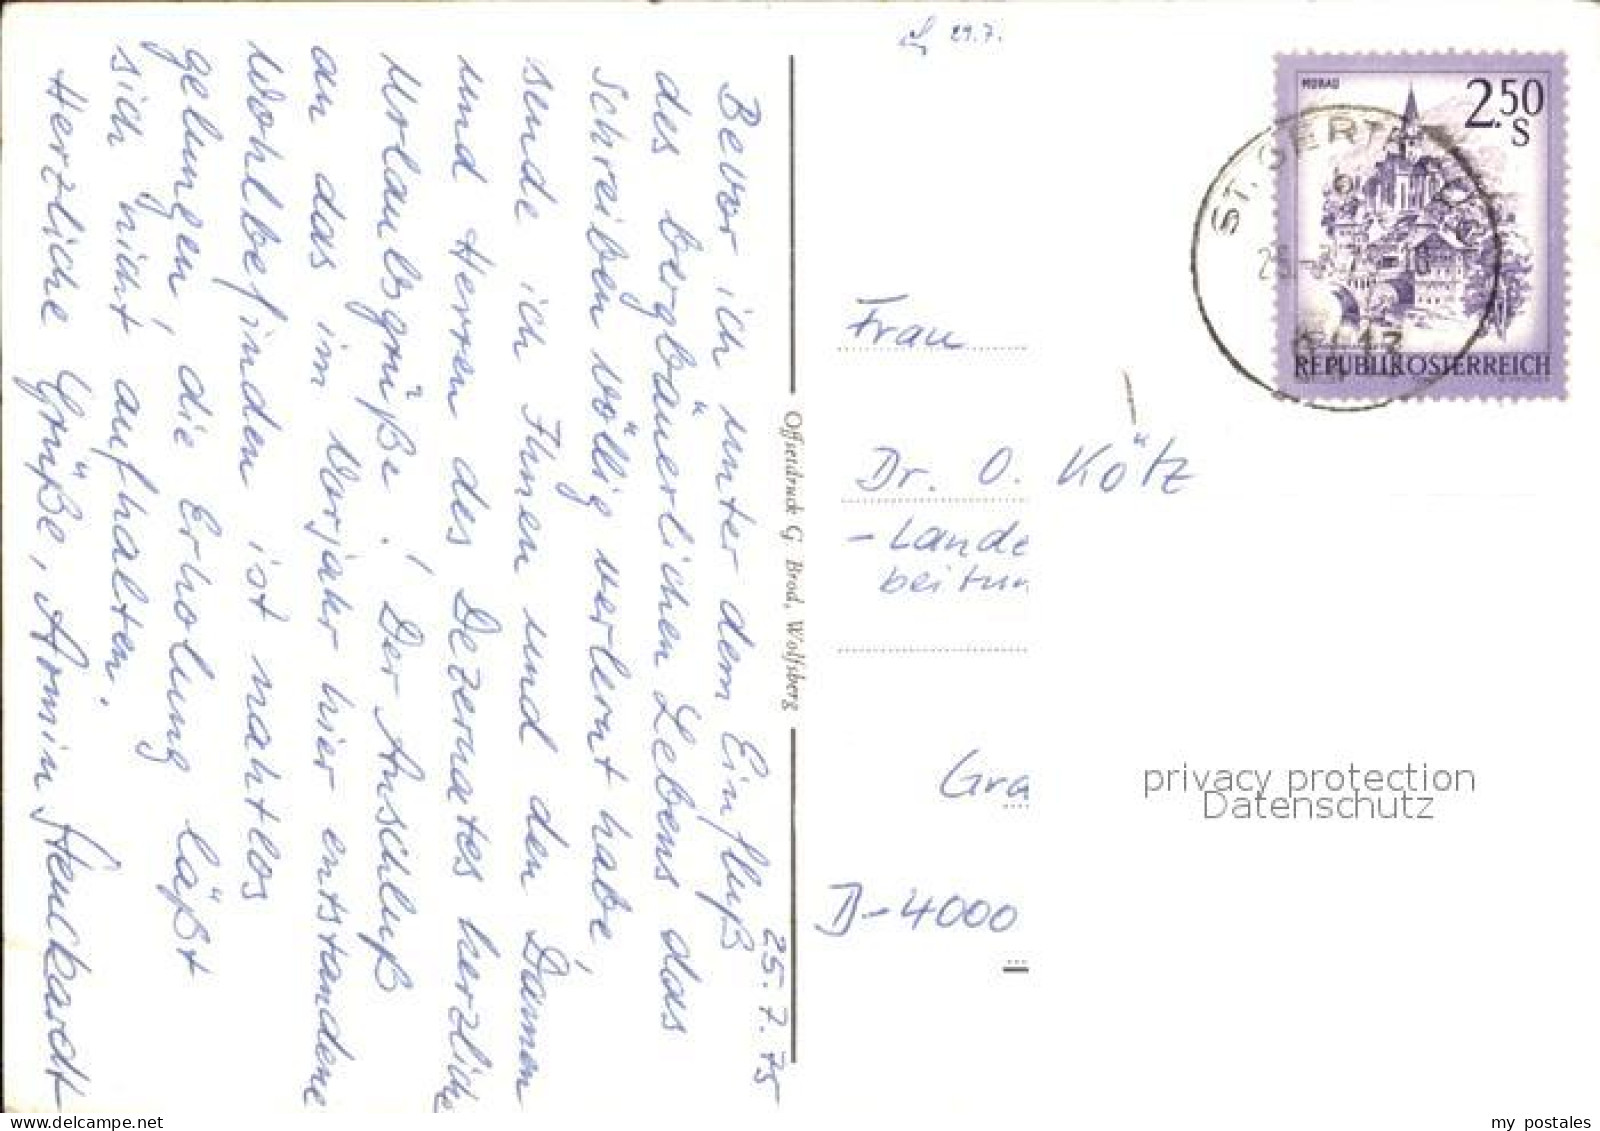 25.7.75
Bevor ich unter dem Einfluß
des bergbäuerlichen Lebens das
Schreiben völlig verlernt habe,
sende ich Ihnen und den Damen
und Herren des Dezernates herzliche
Urlaubsgrüße! Der Anschluß
an das im Vorjahr hier entstandene
Wohlbefinden ist nahtlos
gelungen, die Erholung läßt
sich nicht aufhalten.
Herzliche Grüße, Armin Henckardt
Offsetdruck G. Brod, Wolfsberg
29.7.
MURAU
2.50
S
REPUBLIK ÖSTERREICH
ST. GERTRAUD
Frau
Dr. O. Kötz
- Lande
beitun
Gra
D-4000
privacy protection
Datenschutz
www.delcampe.net
my_postales